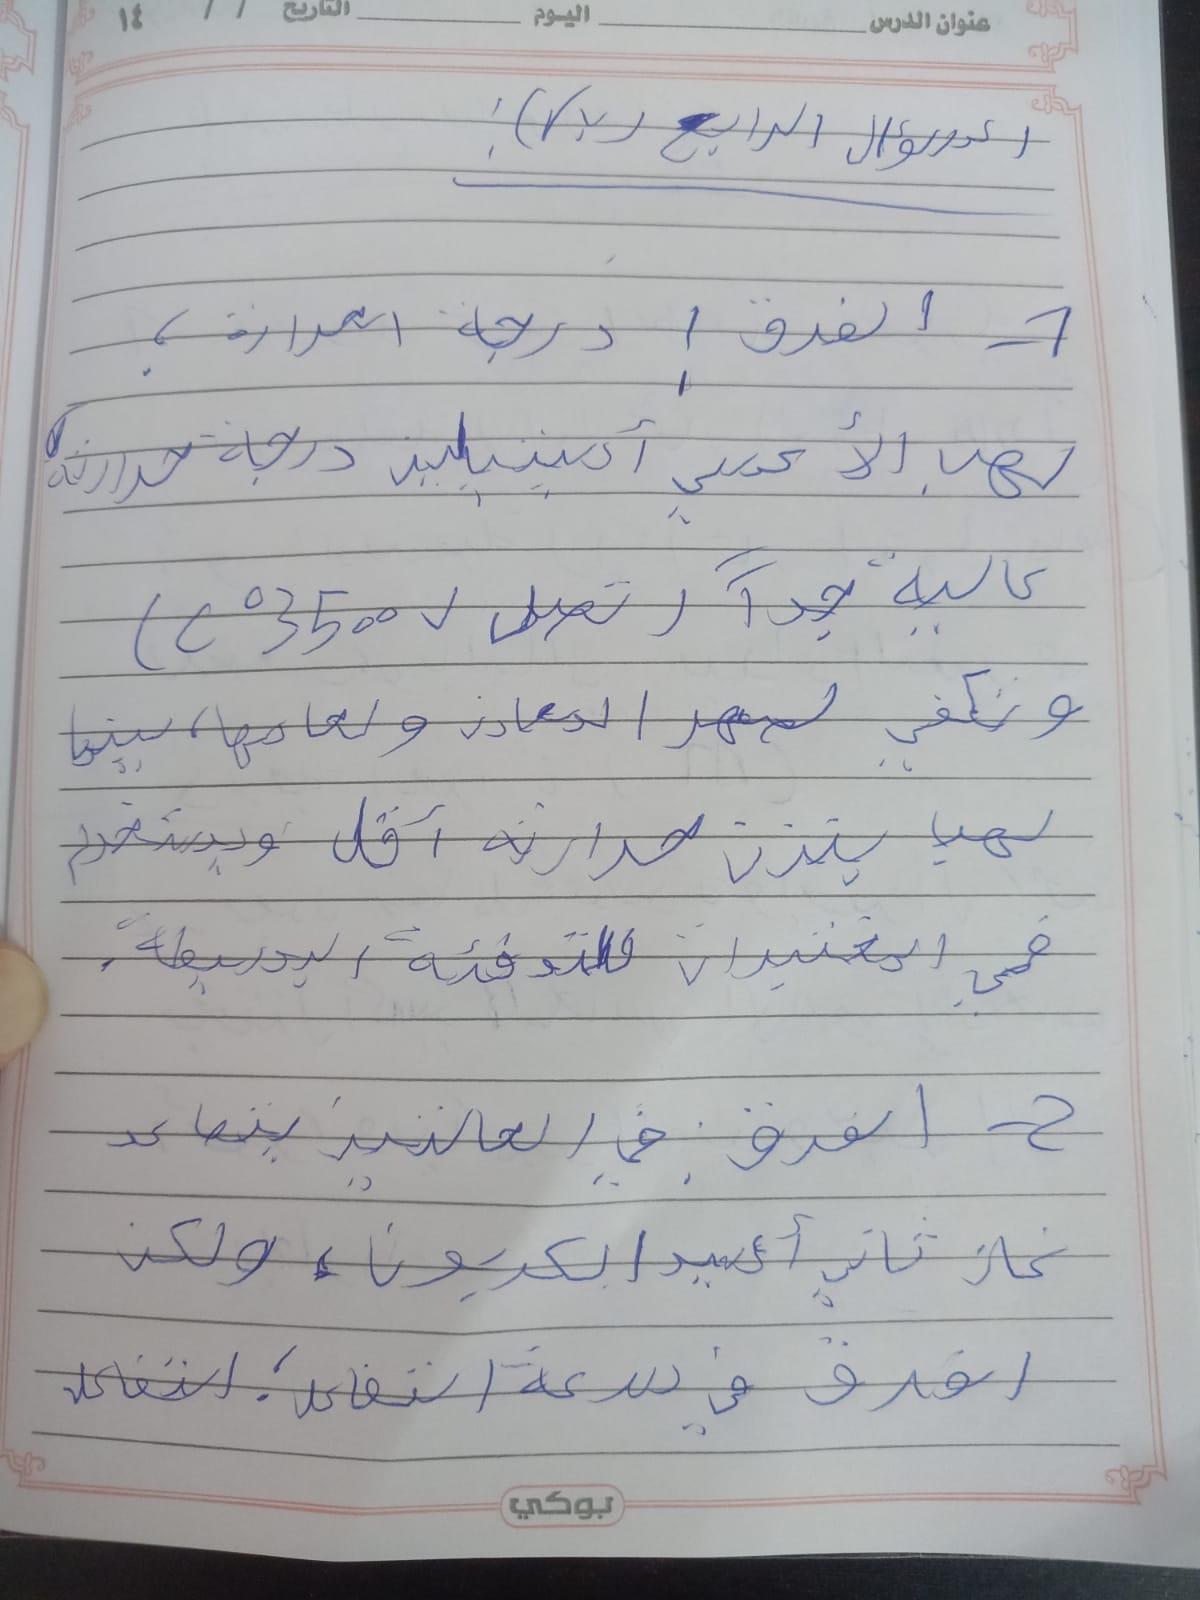 عنوان الدرس اليوم التاريخ / / ١٤
السؤال الرابع (ب):
1- الفرق درجة الحرارة:
لهب الأكسي أسيتيلين درجة حرارته
عالية جداً (تصل لـ 3500°C)
وتكفي لصهر المعادن ولحامها، بينما
لهب بنزن حرارته أقل ويستخدم
في المختبرات للتدفئة البسيطة.
2- الفرق: في الحالتين يتصاعد
غاز ثاني أكسيد الكربون، ولكن
الفرق في سرعة التفاعل؛ التفاعل
بوكي